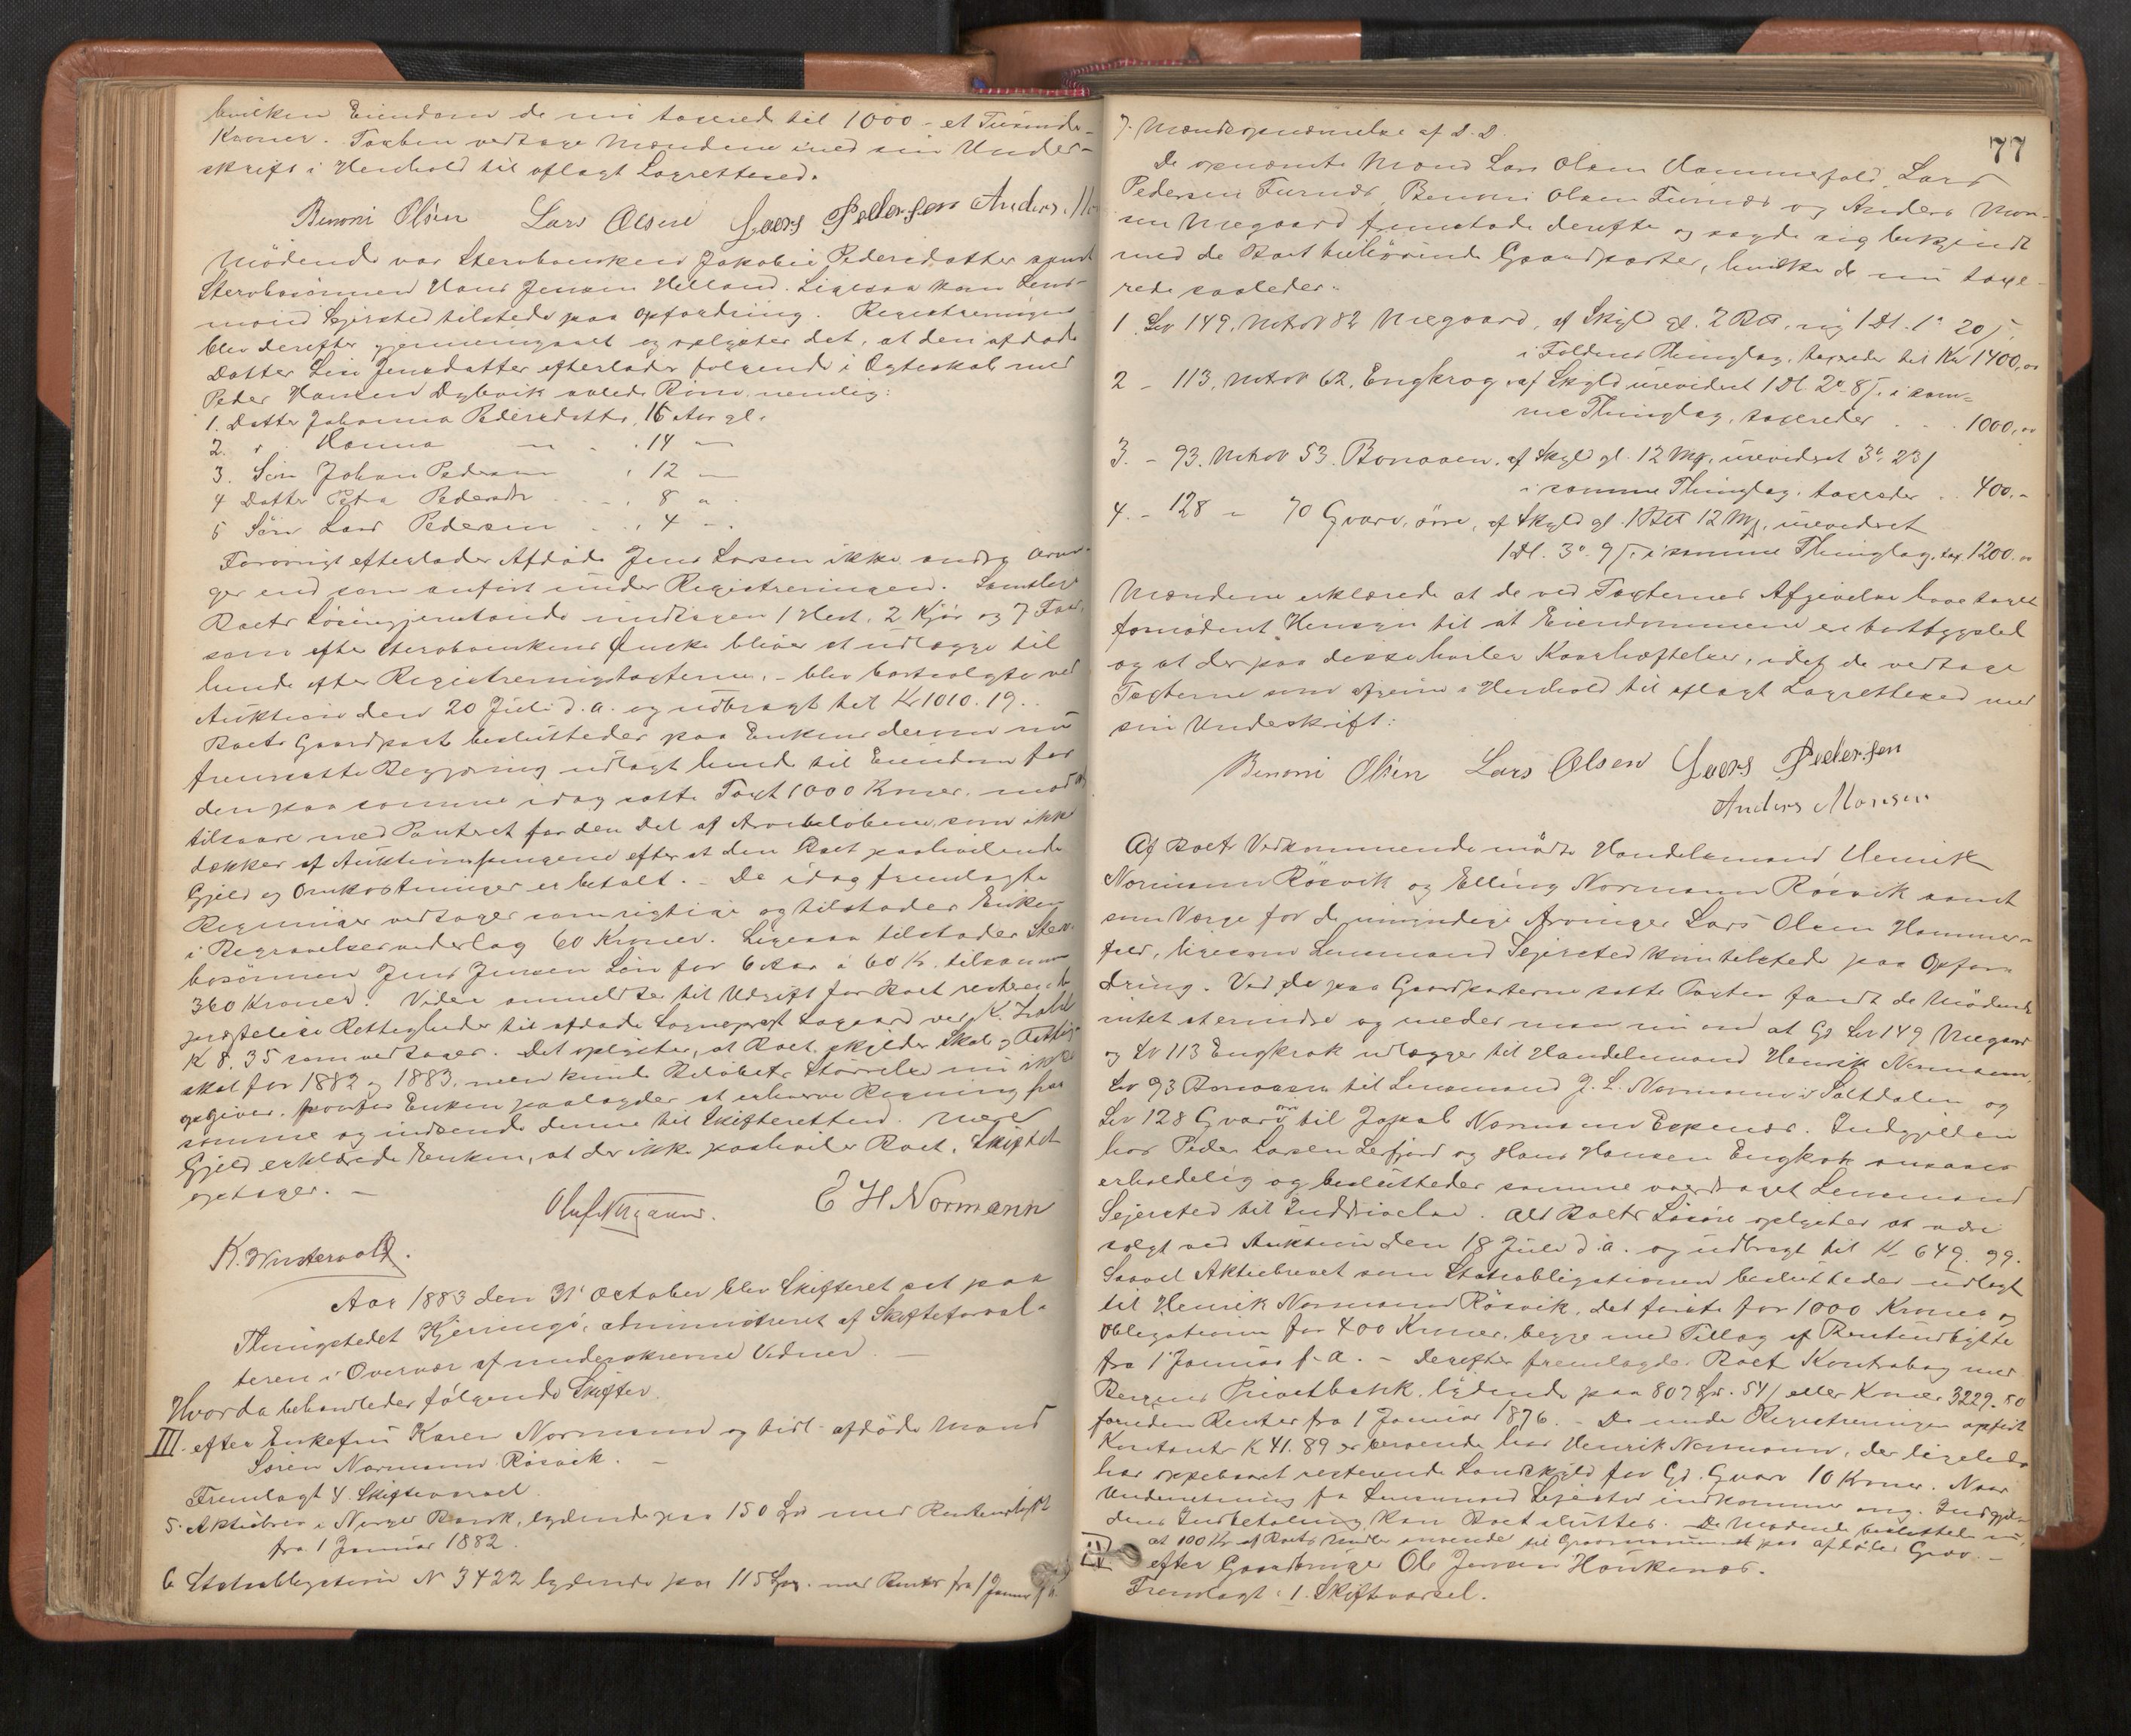 hvilken Eiendom de nu taxered til 1000 - et Tusinde -
Kroner. Taxten vedtage Mændene med sin Under-
skrift i Henhold til aflagt Lagrettesed.
Benoni Olsen Lars Olsen Laers Pedersen Anders
Mødende var Sterboenken Jakobie Pedersdatter samt
Sterbosønnen Hans Jensen Helland. Ligesaa kom Lens-
mand Sejersted tilstede paa Opfordring. Registreringen
blev derefter gjennemgaaet og oplyster det, at den afdøde
Datter Lise Jensdatter efterlader følgende i Ægteskab med
Peder Hansen Dybvik avlede Børn nemlig:
1. Datter Johanna Pedersdatter, 16 Aar gl.
2. " Hanna — " 14 —
3. Søn Johan Pedersen " 12 —
4 Datter Petra Pedersdtr " 8 "
5 Søn Lars Pedersen " 4 -
Forøvrigt efterlader Afdøde Jens Larsen ikke andre Arvin-
ger end som anført under Registreringen. Samtlige
Boets Løsøregjenstande undtagen 1 Hest, 2 Kjør og 7 Faar,
som efter Sterboenkens Ønske bliver at udlægge til
hende efter Registreringstaxterne, - blev bortsolgte ved
Auktion den 20 Juli d.a. og udbragt til Kr 1010.19.
Boets Gaardpart besluttedes paa Enkens derom nu
fremsatte Begjæring udlagt hende til Eiendom for
den paa samme idag satte Taxt 1000 Kroner mod at
tilsvare med Panteret for den Del af Arvebeløbene, som ikke
dækkes af Auktionspengene efter at den Boet paahvilende
Gjeld og Omkostninger er betalt. - De idag fremlagte
Regninger vedtages som rigtige og tilstodes Enken
i Begravelsesvederlag 60 Kroner. Ligesaa tilstodes Ster-
bosønnen Jens Jensen Løn for 6 Aar à 60 Kr. tilsammen
360 Kroner. Videre anmeldtes til Udgift for Boet resterende
præstelige Rettigheder til afdøde Sogneprest Aagaard ved K.
K 8.35 som vedtages. Det oplystes, at Boet skylder Skat og Fattig-
skat for 1882 og 1883, men kunde Beløbets Størrelse nu ikke
opgives, hvorfor Enken paalagdes at erhverve Regning for
samme og indsende denne til Skifteretten. Mere
Gjeld erklærede Enken, at der ikke paahviler Boet. Skiftet
optages. —
E H Normann
Aar 1883 den 31' October blev Skifteret sat paa
Thingstedet Kjerringø, administreret af Skifteforval-
teren i Overvær af underskrevne Vidner. —
Hvorda behandledes følgende Skifter.
III. efter Enkefru Karen Normann og tidl. afdøde Mand
Søren Normann Røsvik. —
Fremlagt 4. Skiftevarsel.
5. Aktiebrev i Norges Bank, lydende paa 150 Spd med Renteudbytte
fra 1 Januar 1882.
6 Statsobligation N 3422 lydende paa 115 Spd. med Renter fra 1 Januar
77
7. Mændsopnævnelse af D.D.
De opnævnte Mænd Lars Olsen Hammerfald, Lars
Pedersen Furnæs, Benoni Olsen Furnæs og Anders Mon-
sen Megaard fremstode derefter og sagde sig bekjendt
med de Boet tilhørende Gaardparter, hvilke de nu taxe-
rede saaledes.
1. Løv 149, Mtr N 82 Megaard, af Skyld gl. 2 , ny 1 Dl. 1 20 ,
i Foldens Thinglag, taxeredes til Kr 1400,00
2 - 113, Mtr N 62, Engkrog, af Skyld urevideret 1 Dl. 2 - 8 , i sam-
me Thinglag, taxeredes . . . 1000,00
3. - 93. Mtr N 53. Bonaaen, af Skyld gl. 12 Mk, urevideret 3 23
i samme Thinglag, taxeredes . . 400.-
4. - 128 - 70 Gvarv, øvre, af Skyld gl. 1 12 Mk, urevideret
1 Dl. 3 . 9 , i samme Thinglag, tax. 1200.00
Mændene erklærede at de ved Taxternes Afgivelse have taget
fornødent Hensyn til at Eiendommene ere bortbygslet
og at der paa disse hviler Kaarheftelser, idet de vedtage
Taxterne som afgivne i Henhold til aflagt Lagrettesed med
sin Underskrift:
Benoni Olsen Lars Olsen Laers Pedersen
Anders Monsen
Af Boets Vedkommende mødte Handelsmand Henrik
Normann Røsvik og Elling Normann Røsvik samt
som Værge for de umyndige Arvinger Lars Olsen Hammer-
fald, ligesom Lensmand Sejersted kom tilstede paa Opfor-
dring. Ved de paa Gaardparterne satte Taxter fandt de Mødende
intet at erindre og meder man nu om at Gd Løv 149 Megaard
og Lv 113 Engkrok udlægges til Handelsmand Henrik Normann,
Løv 93 Bonaasen til Lensmand J. L. Normann i Saltdalen og
Løv 128 Gvarv øvre til Jakob Normann Espenæs. Indgjelden
hos Peder Larsen Lerfjord og Hans Hansen Engkrok ansaaes
erholdelig og besluttedes samme overdraget Lensmand
Sejersted til Inddrivelse. Alt Boets Løsøre oplystes at være
solgt ved Auktion den 18 Juli d.a. og udbragt til Kr 649.99.
Saavel Aktiebrevet som Statsobligationen besluttedes udlagt
til Henrik Normann Røsvik, det første for 1000 Kroner og
Obligationen for 400 Kroner, begge med Tillæg af Renteudbytte
fra 1' Januar f.A. - Derefter fremlagdes Boets Kontrabog med
Bergens Privatbank, lydende paa 807 Spd. 54 / eller Kroner 3229.80
foruden Renter fra 1 Januar 1876. - De under Registreringen opførte
Kontanter K 41.89 er beroende hos Henrik Normann, der ligeledes
har oppebaaret resterende Landskyld for Gd. Gvarv 10 Kroner. Naar
Underretning fra Lensmand Sejersted indkommer ang. Indgjel-
dens Indbetaling kan Boet sluttes. De Mødende besluttede nu,
at 100 Kr. af Boets Midler anvendes til Gravmonument paa Afdødes Grav. —
efter Gaardbruger Ole Jensen Haukenæs.
Fremlagt: 1. Skiftevarsel.